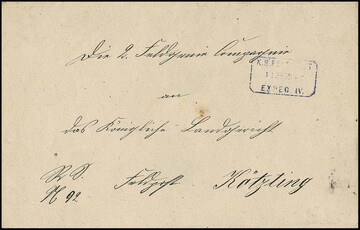 Die 2. Feldgenie Compagnie
K.B.
EXPED. IV.
an
das Königliche Landgericht
R. S.
Feldpost Kötzting
N 92